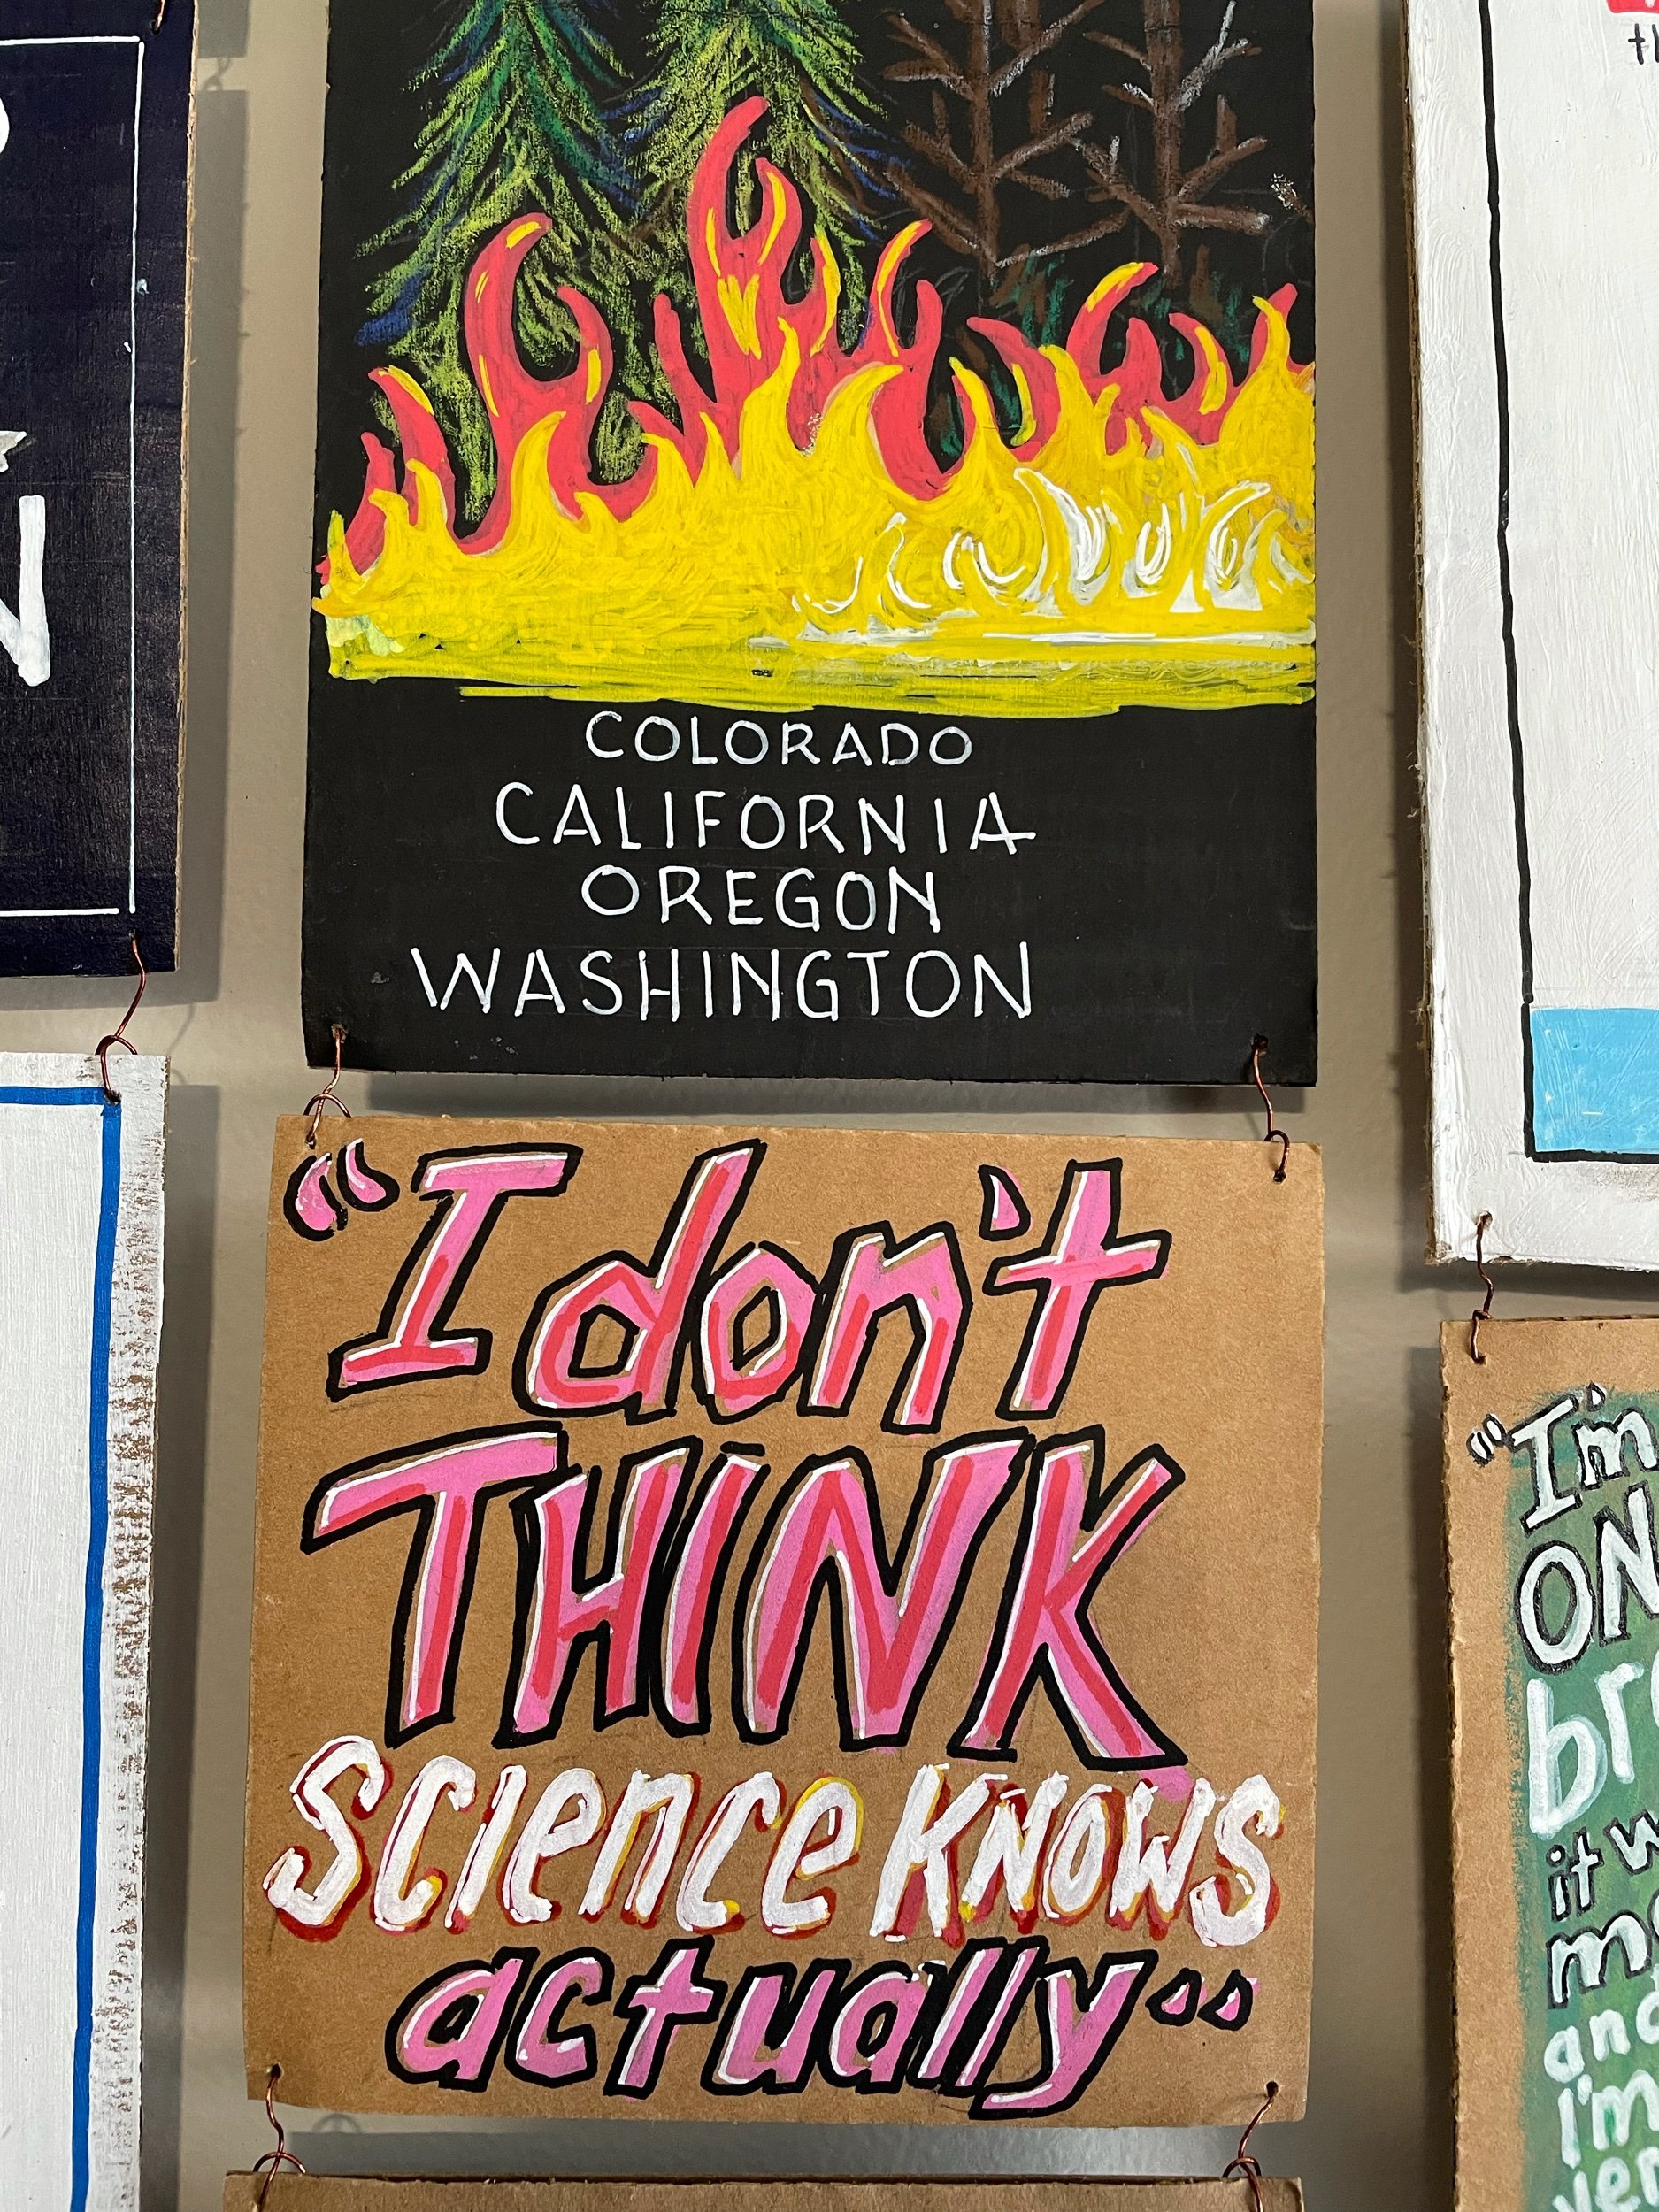 COLORADO
CALIFORNIA
OREGON
WASHINGTON
"I don't
THINK
Science KNOWS
actually"
"I'm
ON
it
and
I'm